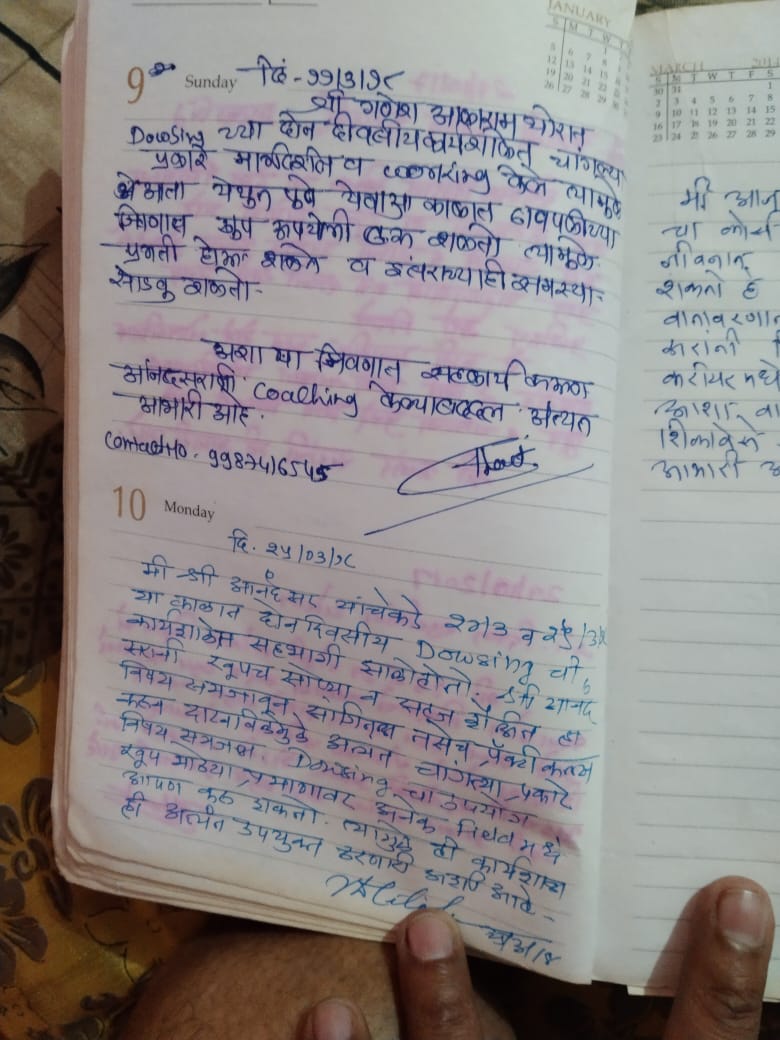 JANUARY
S M T W T
5 6 7 8
12 13 14 15
19 20 21 22
26 27 28 29
9 Sunday दि - ११/३/१८
श्री गणेश आत्माराम थोरात
Dowsing च्या दोन दिवसीय कार्यशाळेत चांगल्या
प्रकारे मार्गदर्शन व coaching केले त्यामुळे
येथुन पुढे येणाऱ्या काळात
खुप उपयोगी ठरू शकतो त्यामुळे
प्रगती होऊ शकते व इतरांच्याही समस्या
सोडवू शकतो.
अशा या
आनंदसरांशी Coaching केल्याबद्दल अत्यंत
आभारी आहे.
Contact No. 9987416545
10 Monday
दि. २५/०३/१८
मी श्री आनंद सर यांचेकडे २४/३ व २५/३/१८
या काळात दोन दिवसीय Dowsing ची
कार्यशाळेस सहभागी झालो होतो. श्री आनंद
सरांनी खूपच सोप्या व सहज शैलीत हा
विषय समजावून सांगितला तसेच प्रॅक्टीकल्स
करून दाखविलेमुळे अत्यंत चांगल्या प्रकारे
विषय समजला. Dowsing चा उपयोग
खूप मोठ्या प्रमाणावर अनेक विषयांमध्ये
आपण करू शकतो. त्यामुळे ही कार्यशाळा
ही अत्यंत उपयुक्त ठरणारी अशी आहे.
MARCH
S M T W T F S
30 31 1
2 3 4 5 6 7 8
9 10 11 12 13 14 15
16 17 18 19 20 21 22
23 24 25 26 27 28 29
मी आज
चा कोर्स
जीवनात
शकतो ह
वातावरणात
करीयर मध्ये
आभारी